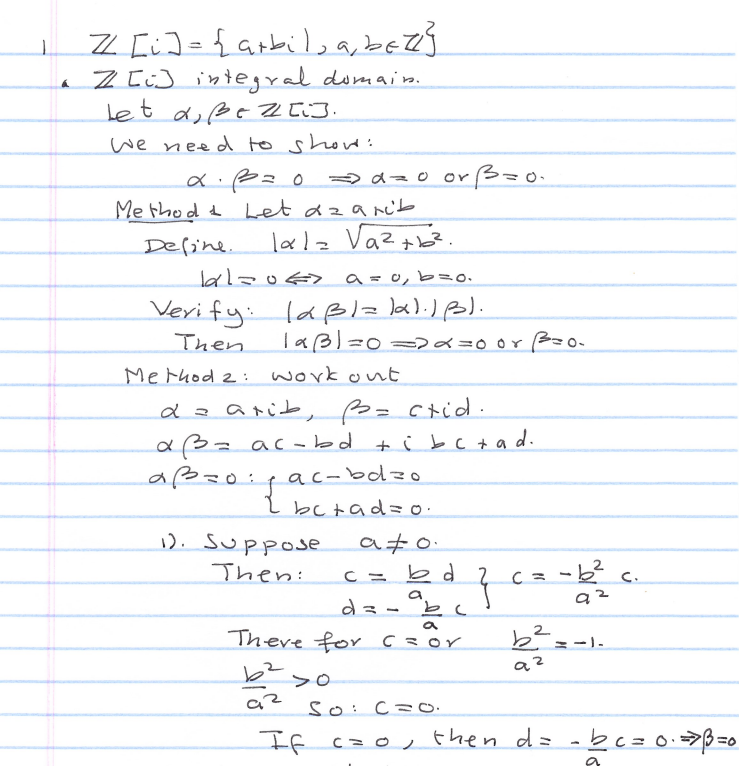 1 ℤ[i] = { a+bi | , a, b ∈ ℤ² }
• ℤ[i] integral domain.
Let α, β ∈ ℤ[i].
We need to show:
α · β = 0 ⟹ α = 0 or β = 0.
Method 1 Let α = a+ib
Define. |α| = √(a² + b²).
|α| = 0 ⟺ a = 0, b = 0.
Verify: |αβ| = |α|.|β|.
Then |αβ| = 0 ⟹ α = 0 or β = 0.
Method 2: work out
α = a+ib, β = c+id.
αβ = ac - bd + i bc + ad.
αβ = 0 : { ac - bd = 0
bc + ad = 0.
1). Suppose a ≠ 0.
Then: c = b/a d } c = -b²/a² c.
d = - b/a c
There for c = or b²/a² = -1.
b²/a² > 0
so: c = 0.
If c = 0, then d = - b/a c = 0. ⇒ β = 0